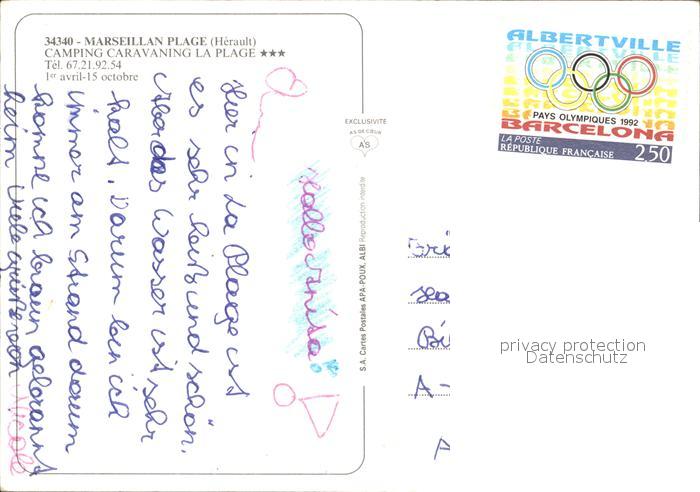 34340 - MARSEILLAN PLAGE (Hérault)
CAMPING CARAVANING LA PLAGE ★★★
Tél. 67.21.92.54
1er avril-15 octobre
Hallo Anita!
Hier in La Plage ist
es sehr heiß und schön.
Aber das Wasser ist sehr
kalt. Darum bin ich
immer am Strand darum
komme ich braun gebrannt
heim. Viele von
NICOLE
EXCLUSIVITÉ
AS DE CŒUR
AS
S.A. Cartes Postales APA-POUX, ALBI Reproduction interdite
ALBERTVILLE
PAYS OLYMPIQUES 1992
BARCELONA
LA POSTE
RÉPUBLIQUE FRANÇAISE 2,50
A-
privacy protection
Datenschutz